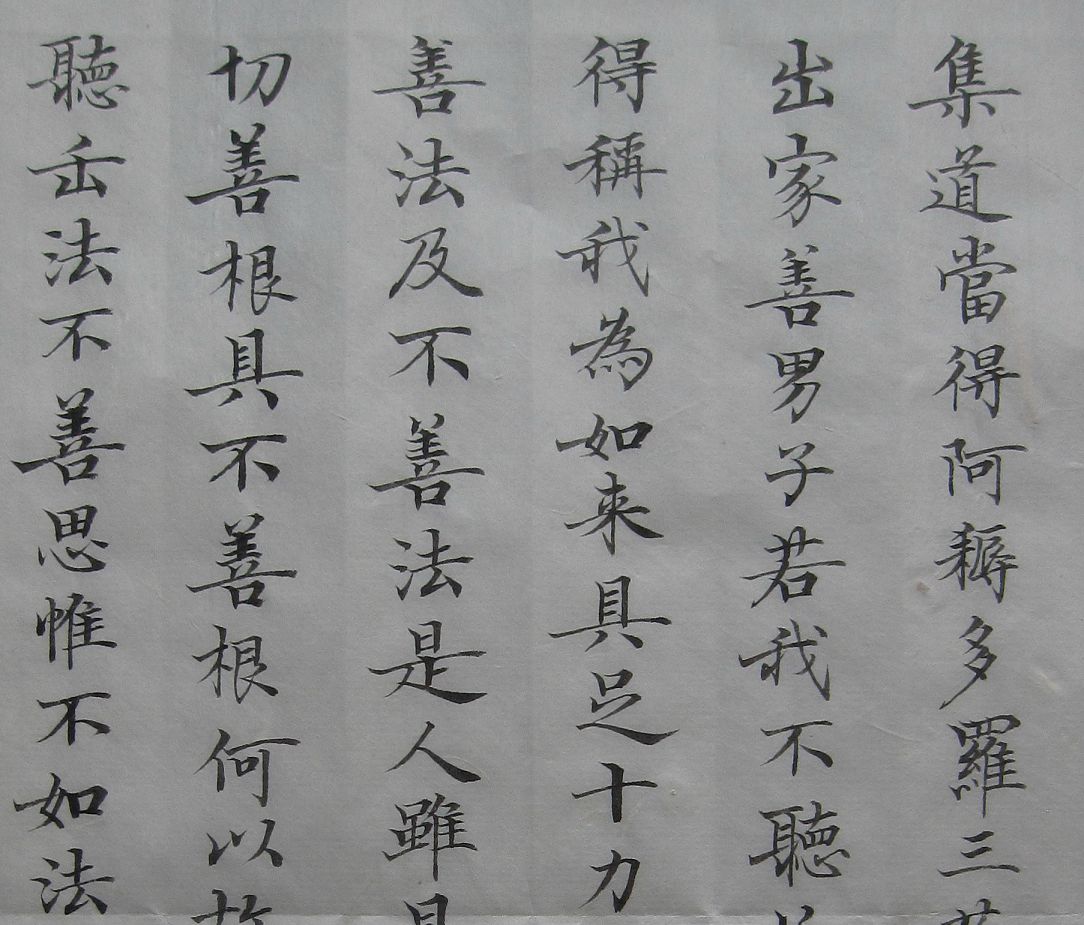 集道當得阿耨多羅三
出家善男子若我不聽
得稱我為如来具足十力
善法及不善法是人雖
切善根具不善根何以故
聽正法不善思惟不如法